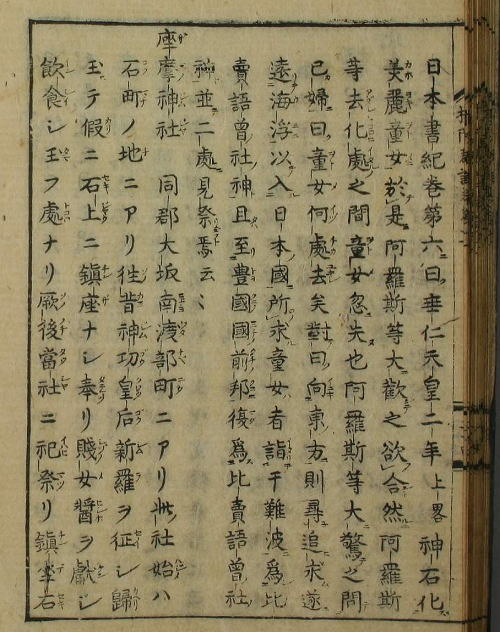 日本書紀巻第六曰垂仁天皇二年上畧神石化
美麗童女於是阿羅斯等大歡之欲合然阿羅斯
等去化處之間童女忽失也阿羅斯等大驚之問
己婦曰童女何處去矣對曰向東方則尋追求遂
遠海浮以入日本國所求童女者詣于難波為比
賣語曽社神且至豊國國前邦復為比賣語曽社
神並二處見祭焉云々
座摩神社 同郡大坂南渡部町ニアリ此社始ハ
石町ノ地ニアリ往昔神功皇后新羅ヲ征シ歸
玉テ假ニ石上ニ鎮座ナシ奉リ賤女醬ヲ獻シ
飲食シ玉フ處ナリ厥後當社ニ祀祭リ鎮坐石